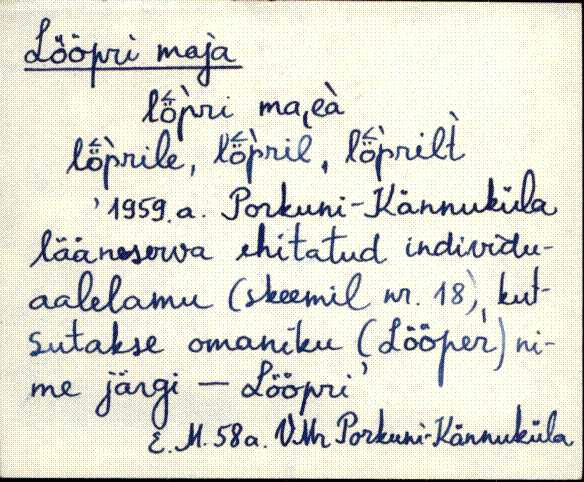 Lööpri maja
lö̀pri ma,eà
lö̀prile, lö̀pril, lö̀prilt̀
'1959.a. Porkuni-Kännuküla
lääneserva ehitatud individu-
aalelamu (skeemil nr. 18), kut-
sutakse omaniku (Lööper) ni-
me järgi — Lööpri'
E. M. 58 a. VMr Porkuni-Kännuküla